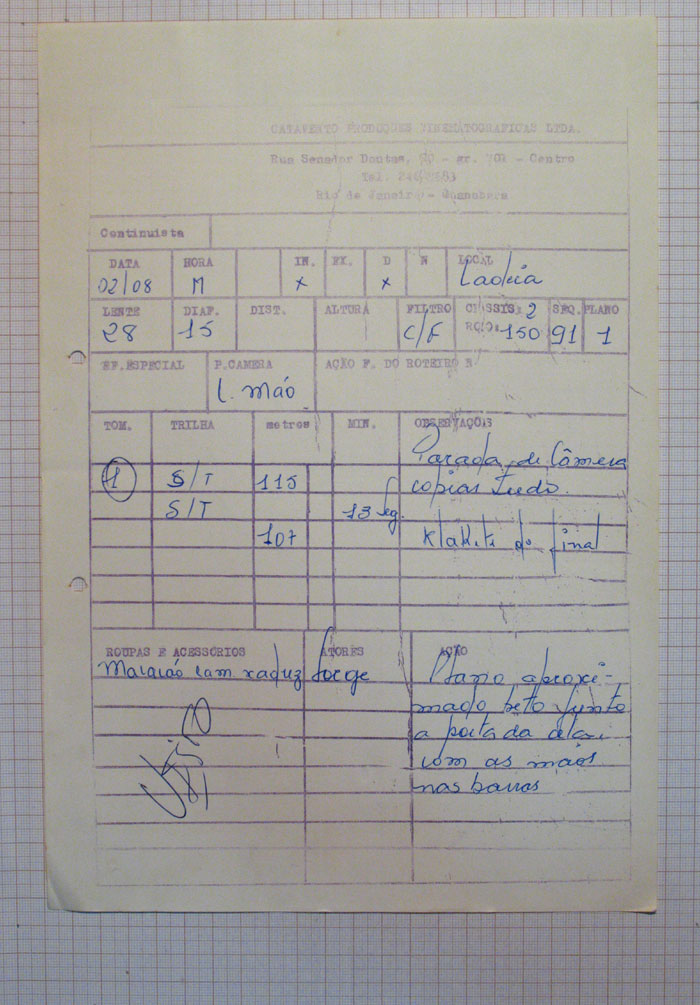 CATAVENTO PRODUÇOES CINEMATOGRAFICAS LTDA.
Rua Senador Dantas, - gr. 701 - Centro
Tel.
Rio de Janeiro - Guanabara
Continuista
DATA HORA IN. EX. D N LOCAL
02/08 M x x
LENTE DIAF. DIST. ALTURA FILTRO CHASSIS: 2 SEQ. PLANO
28 15 C/F ROLO: 150 91 1
EF.ESPECIAL P.CAMERA AÇÃO F. DO ROTEIRO E
C. Mão
TOM. TRILHA metros MIN. OBSERVAÇÕES
Parada de Câmera
1 S/T 115 copiar tudo.
S/T 13 seg.
107 final
ROUPAS E ACESSÓRIOS ATORES AÇÃO
Macacão Jorge Plano aproxi-
mado beto junto
a porta da
com as mãos
nas barras